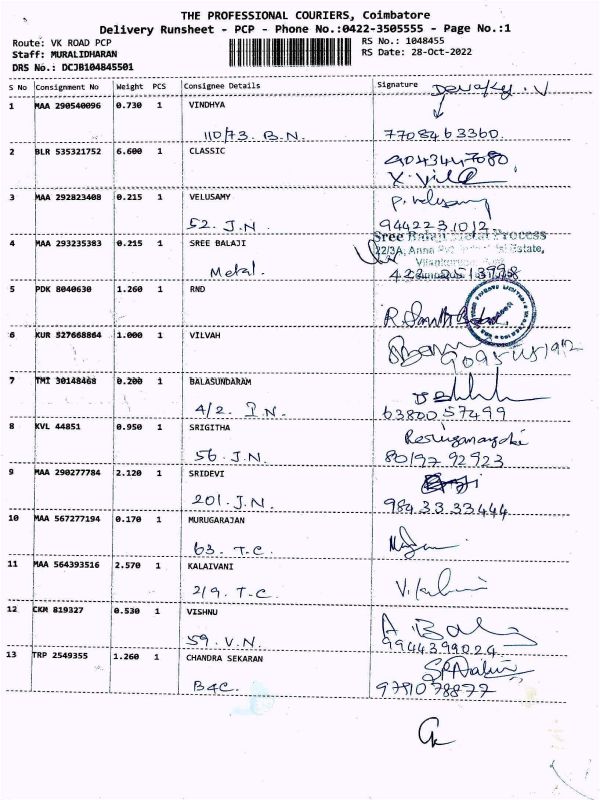 THE PROFESSIONAL COURIERS, Coimbatore
Delivery Runsheet - PCP - Phone No.:0422-3505555 - Page No.:1
Route: VK ROAD PCP
RS No.: 1048455
Staff: MURALIDHARAN
RS Date: 28-Oct-2022
DRS No.: DCJB104845501
S No Consignment No Weight PCS Consignee Details Signature
1 MAA 290540096 0.730 1 VINDHYA
110/73. B.N. 7708463360
2 BLR 535321752 6.600 1 CLASSIC
9043447080
3 MAA 292823408 0.215 1 VELUSAMY P. Velusamy
52. J.N. 9442231012
Sree Balaji Metal Process
4 MAA 293235383 0.215 1 SREE BALAJI 22/3A, Anna Estate,
Metal.
5 PDK 8040630 1.260 1 RND
6 KUR 527668864 1.000 1 VILVAH
7 TMT 30148468 0.200 1 BALASUNDARAM
4/2. I.N. 6380057499
8 KVL 44851 0.950 1 SRIGITHA
56. J.N. 8019792923
9 MAA 290277784 2.120 1 SRIDEVI
201. J.N. 9843333444
10 MAA 567277194 0.170 1 MURUGARAJAN
63. T.C.
11 MAA 564393516 2.570 1 KALAIVANI
2/9. T.C.
12 CKM 819327 0.530 1 VISHNU
59. V.N. 9944399029
13 TRP 2549355 1.260 1 CHANDRA SEKARAN
B4C. 9791078877